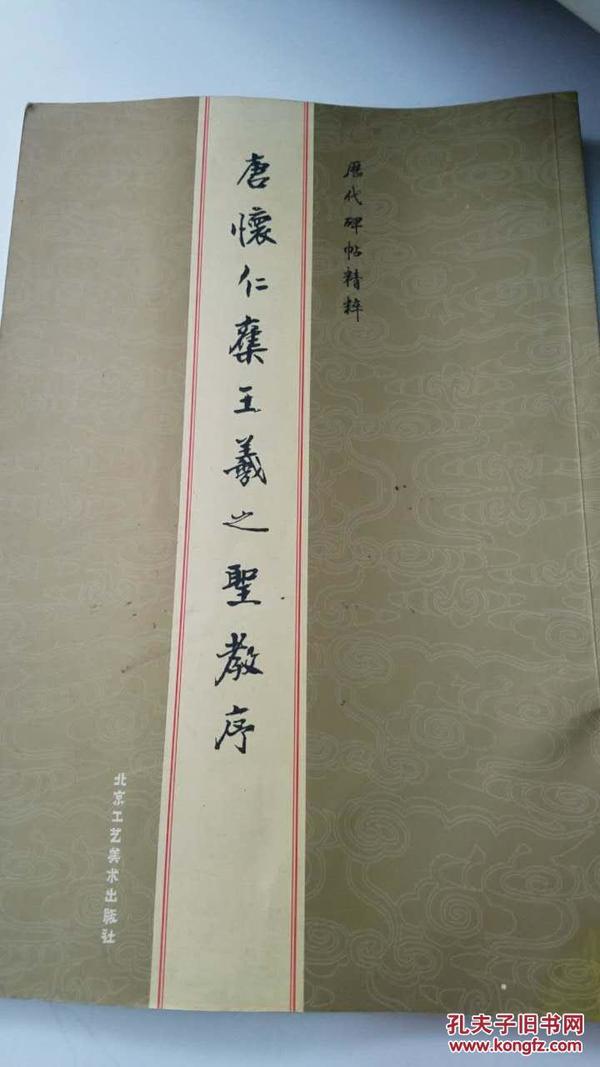 歷代碑帖精粹
唐懷仁集王羲之聖教序
北京工艺美术出版社
孔夫子旧书网
www.kongfz.com